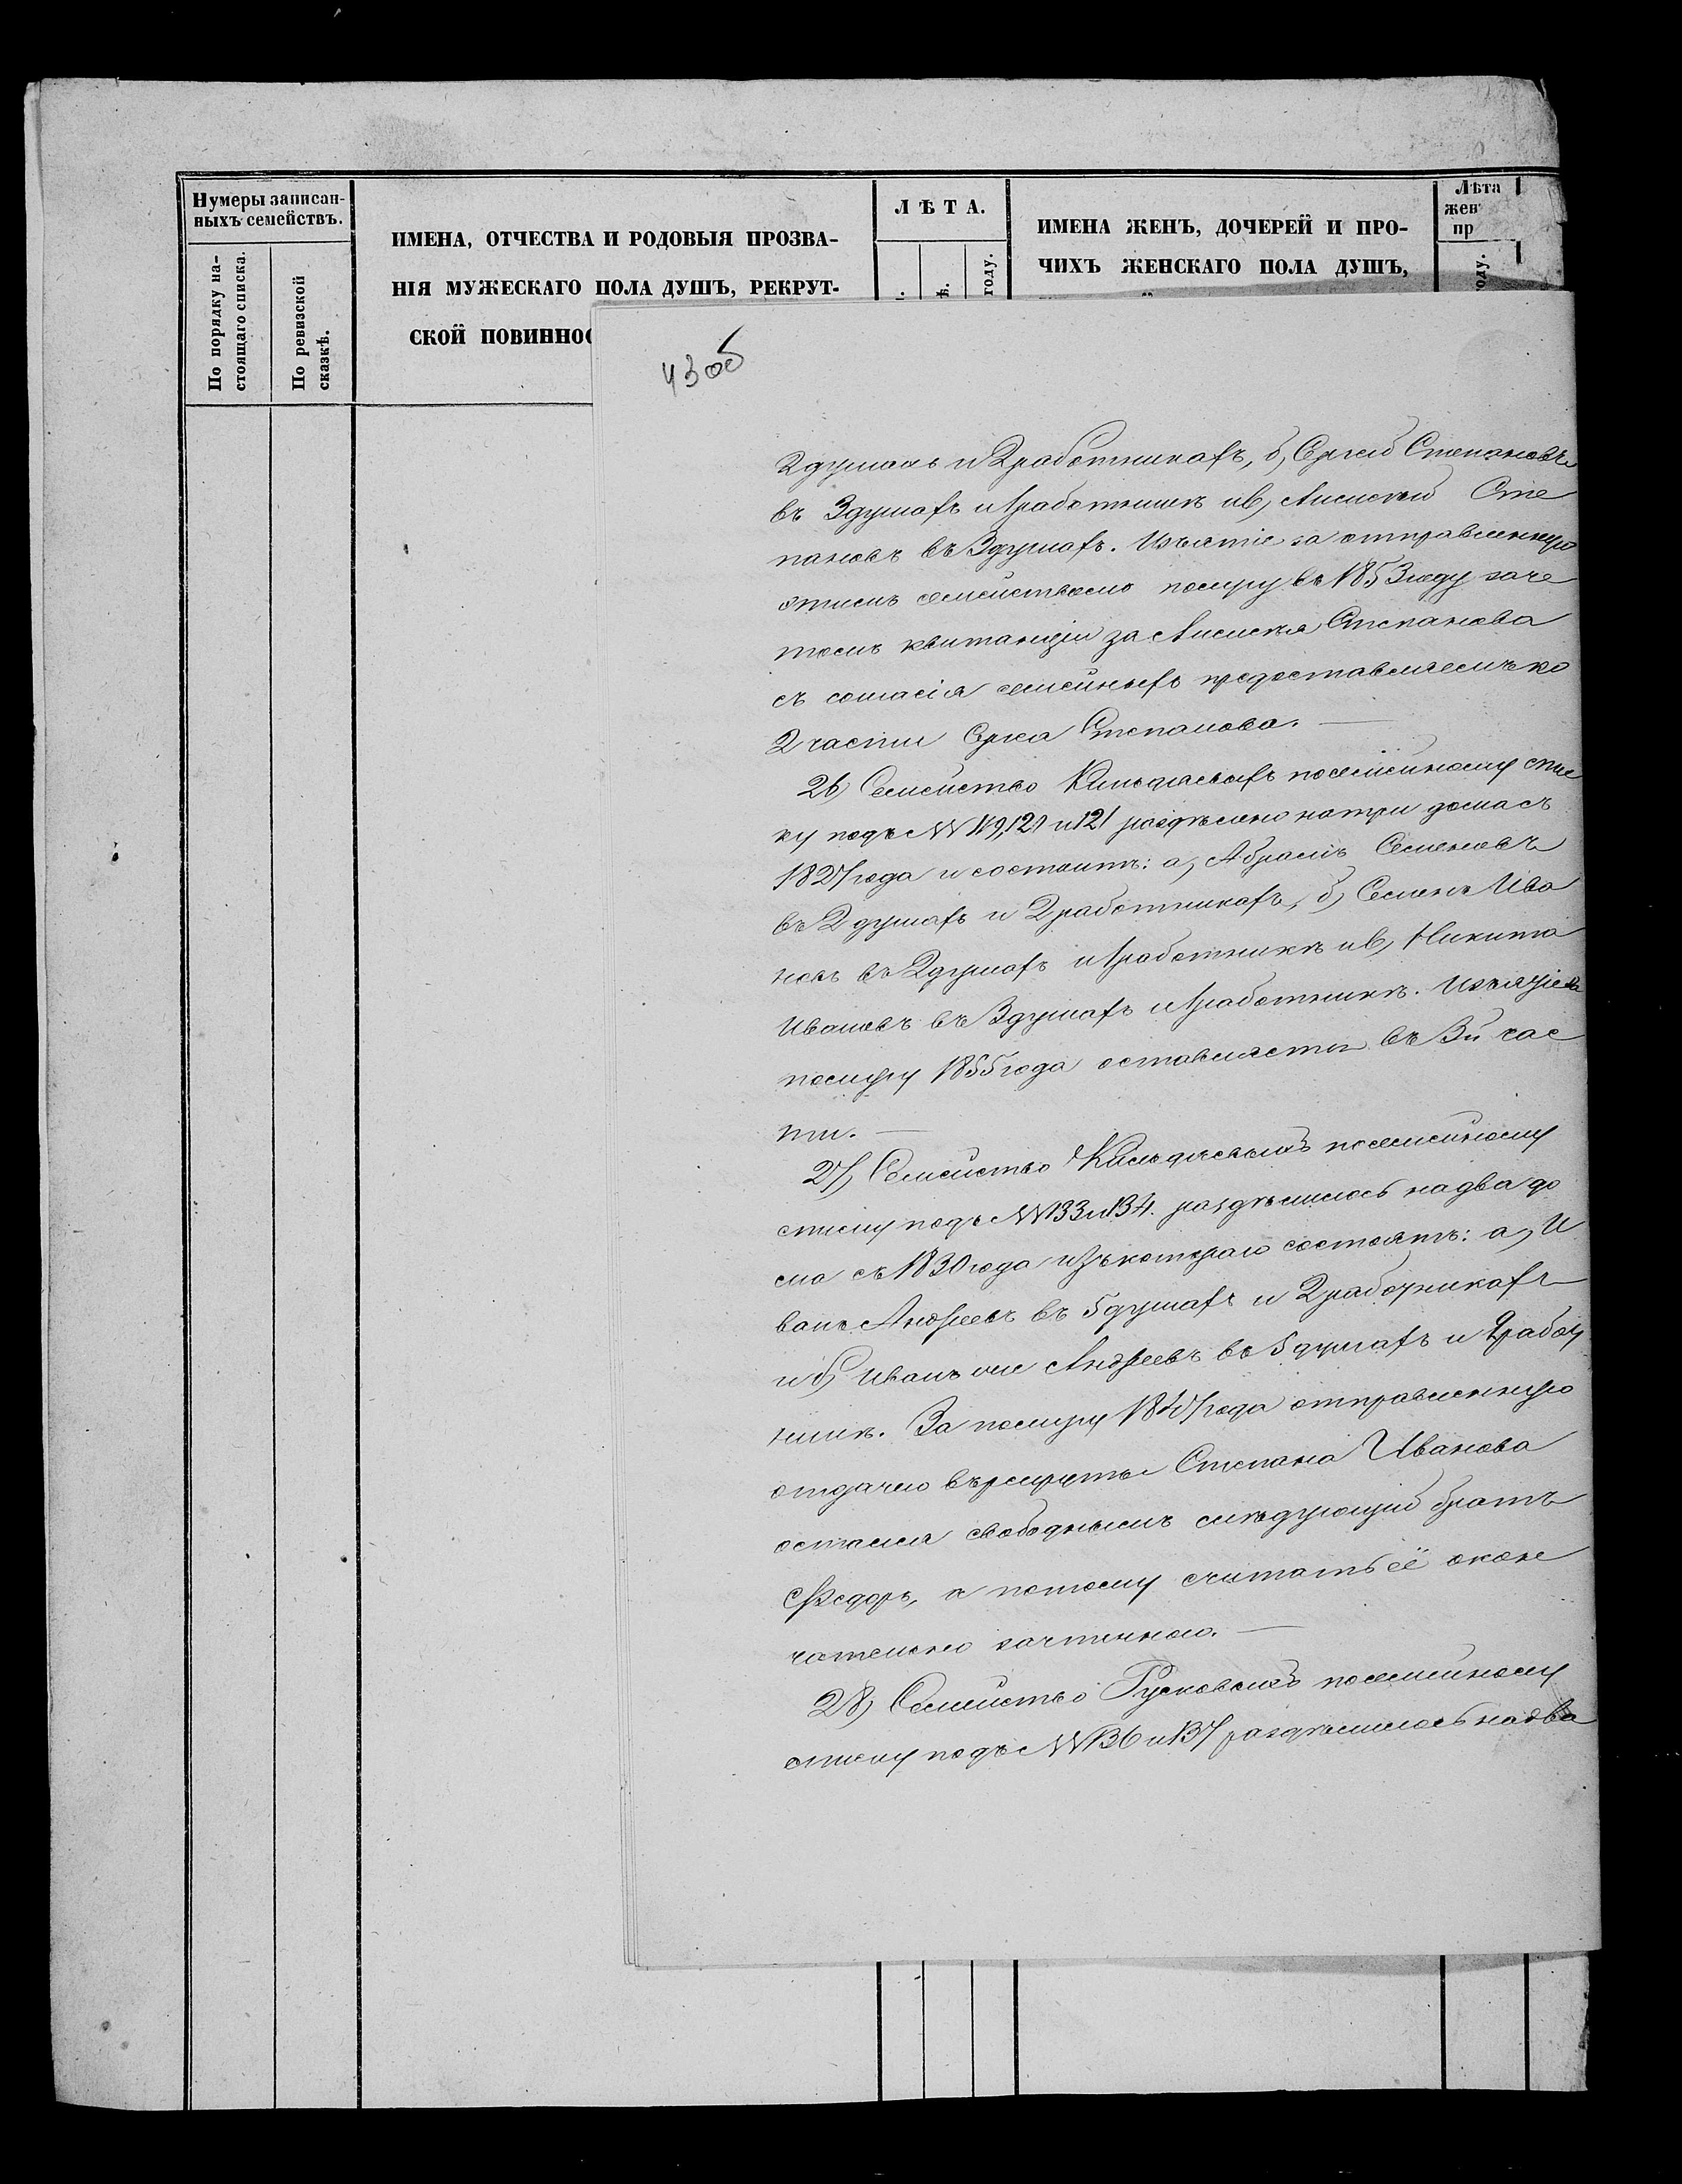 Нумеры записан-
ныхъ семействъ.
По порядку на-
стоящаго списка.
По ревизской
сказкѣ.
ИМЕНА, ОТЧЕСТВА И РОДОВЫЯ ПРОЗВА-
НІЯ МУЖЕСКАГО ПОЛА ДУШЪ, РЕКРУТ-
СКОЙ ПОВИННОС
ЛѢТА.
году.
ИМЕНА ЖЕНЪ, ДОЧЕРЕЙ И ПРО-
ЧИХЪ ЖЕНСКАГО ПОЛА ДУШЪ,
Лѣта
жен
пр
оду.
43 об
2 душахъ и 2 работникахъ, б, Сергей Степановъ
въ 3 душахъ и 1 работникѣ и в, Алексѣй Сте
пановъ въ 3 душахъ. Изъятіе за отправленную
этимъ семействомъ полицу въ 1853 году заче
томъ квитанціи за Алексѣя Степанова
съ согласія семейныхъ предоставляемъ ко
2 части Сергея Степанова.
26, Семейство по семейному спис
ку подъ №№ 119, 120 и 121 раздѣлено на три дома съ
1827 года и состоитъ: а, Абрамъ Семеновъ
въ 2 душахъ и 2 работникахъ, б, Семенъ Ива
новъ въ 2 душахъ и 1 работникѣ и в, Никита
Ивановъ въ 3 душахъ и 1 работникѣ. Изъятіе за
полицу 1855 года оставляется въ 3й час
ти.
27, Семейство по семейному
списку подъ №№ 133 и 134. раздѣлилось на два до
ма съ 1830 года изъ котораго состоятъ: а, И
ванъ Андреевъ въ 5 душахъ и 2 работникахъ
и б, Иванъ же Андреевъ въ 5 душахъ и 1 работ
никѣ. За полицу 1847 года отправленную
отдачею въ рекруты Степана Иванова
остался свободнымъ слѣдующій братъ
Ѳедоръ, а потому считать её окон
чательно зачтенною.
28, Семейство Русковыхъ по семейному
списку подъ №№ 136 и 137 раздѣлилось на два